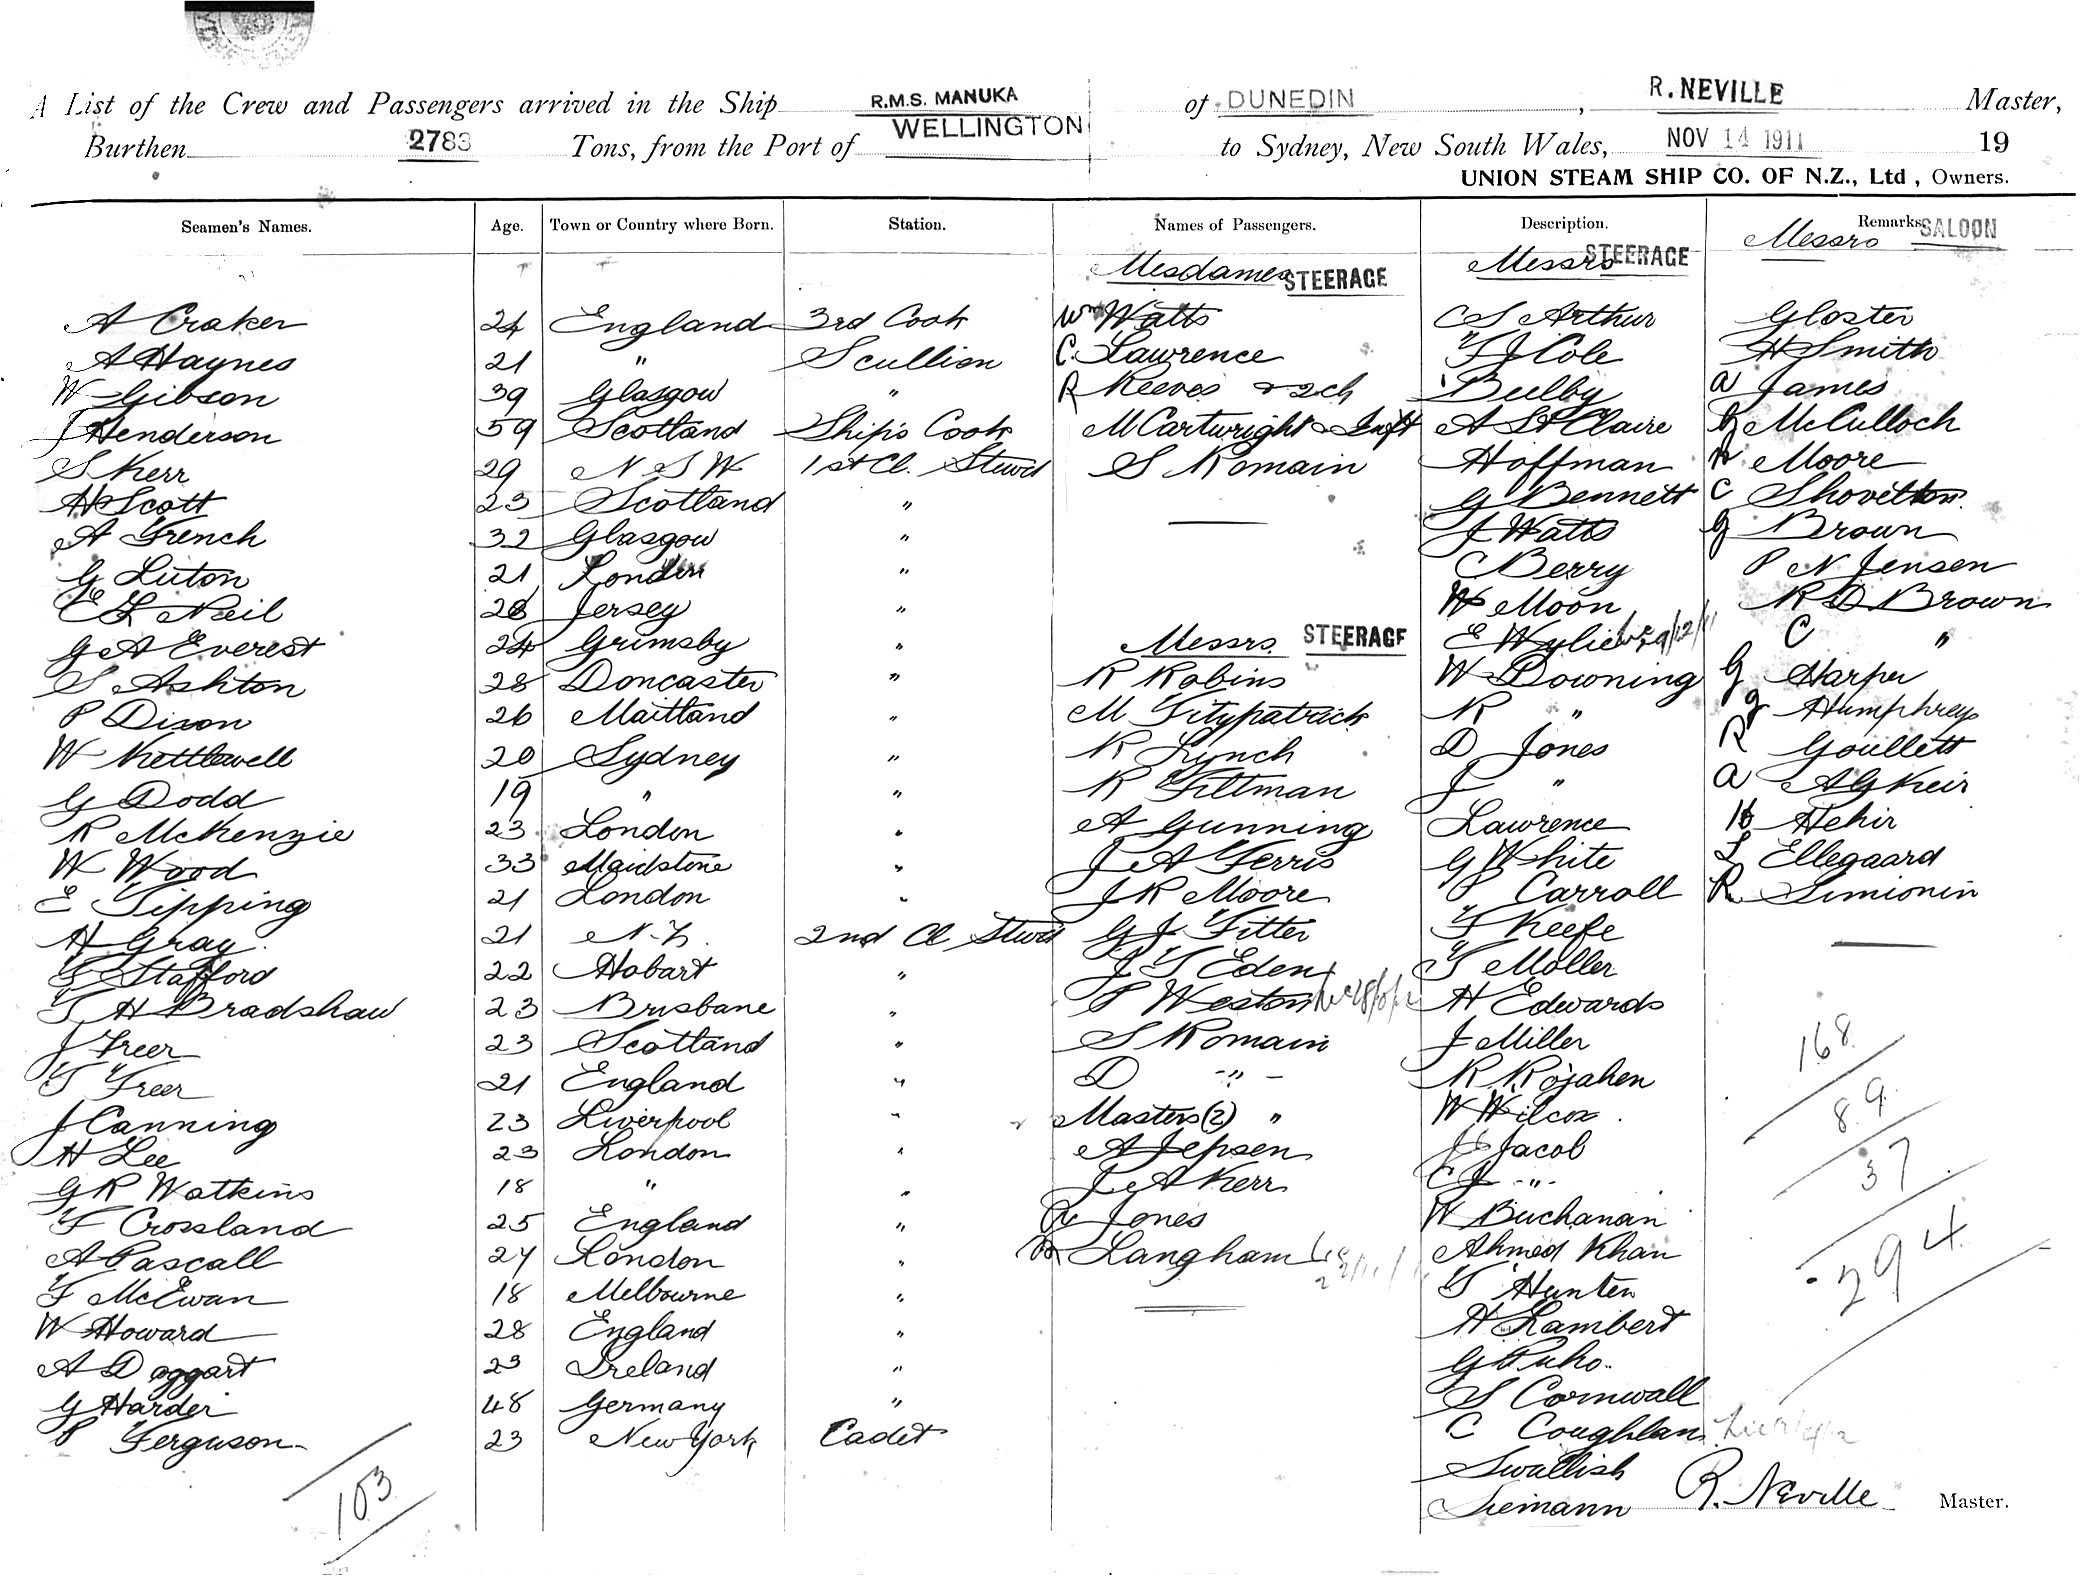 A List of the Crew and Passengers arrived in the Ship R.M.S. MANUKA of DUNEDIN, R. NEVILLE Master,
Burthen 2783 Tons, from the Port of WELLINGTON to Sydney, New South Wales, NOV 14 1911 19
UNION STEAM SHIP CO. OF N.Z., Ltd, Owners.
Seamen's Names. Age. Town or Country where Born. Station. Names of Passengers. Description. Remarks.
Mesdames STEERAGE Messrs STEERAGE Messrs SALOON
A Craker 24 England 3rd Cook Wm Watts C S Arthur Gloster
A Haynes 21 " Scullion C. Lawrence T J Cole H Smith
W Gibson 39 Glasgow " R Reeves & 2ch Bulby A James
J Henderson 59 Scotland Ship's Cook M Cartwright & Inft A St Claire McCulloch
S Kerr 29 N S W 1st Cl. Stwd S Romain Hoffman Moore
H Scott 23 Scotland " G Bennett C Shovelton
A French 32 Glasgow " J Watts G Brown
G Luton 21 London " C Berry P N Jensen
E L Neil 28 Jersey " W Moon R D Brown
G A Everest 24 Grimsby " Messrs. STEERAGE E Wylie C "
S Ashton 28 Doncaster " R Robins W Downing G Harper
P Dixon 26 Maitland " M Fitzpatrick R " Humphreys
W Kettlewell 20 Sydney " R Lynch D Jones R Goullett
G Dodd 19 " " R Tittman J " A A G Keir
R McKenzie 23 London " A Gunning Lawrence H Hehir
W Wood 33 Maidstone " J A Ferris G White L Ellegaard
E Tipping 21 London " J R Moore P Carroll R Simionin
H Gray 21 N.Z. 2nd Cl Stwd G J Titter T Keefe
F Stafford 22 Hobart " J T Eden T Moller
T H Bradshaw 23 Brisbane " P Weston H Edwards
J Freer 23 Scotland " S Romain J Miller
T Freer 21 England " D " R Rojahen
J Canning 23 Liverpool " Masters (2) " W Wilcox
H Lee 23 London " A Jepsen J E Jacob
G R Watkins 18 " " J A Kerr C J "
F Crossland 25 England " Jones W Buchanan
A Pascall 27 London " Langham Ahmed Khan
F McEwan 18 Melbourne " T Hunter
W Howard 28 England " H Lambert
A Doggart 23 Ireland " G Puho
G Harder 48 Germany " S Cornwall
P Ferguson 23 New York Cadet C Coughlan
Swallish
Siemann
168
89
37
294
103
R. Neville Master.